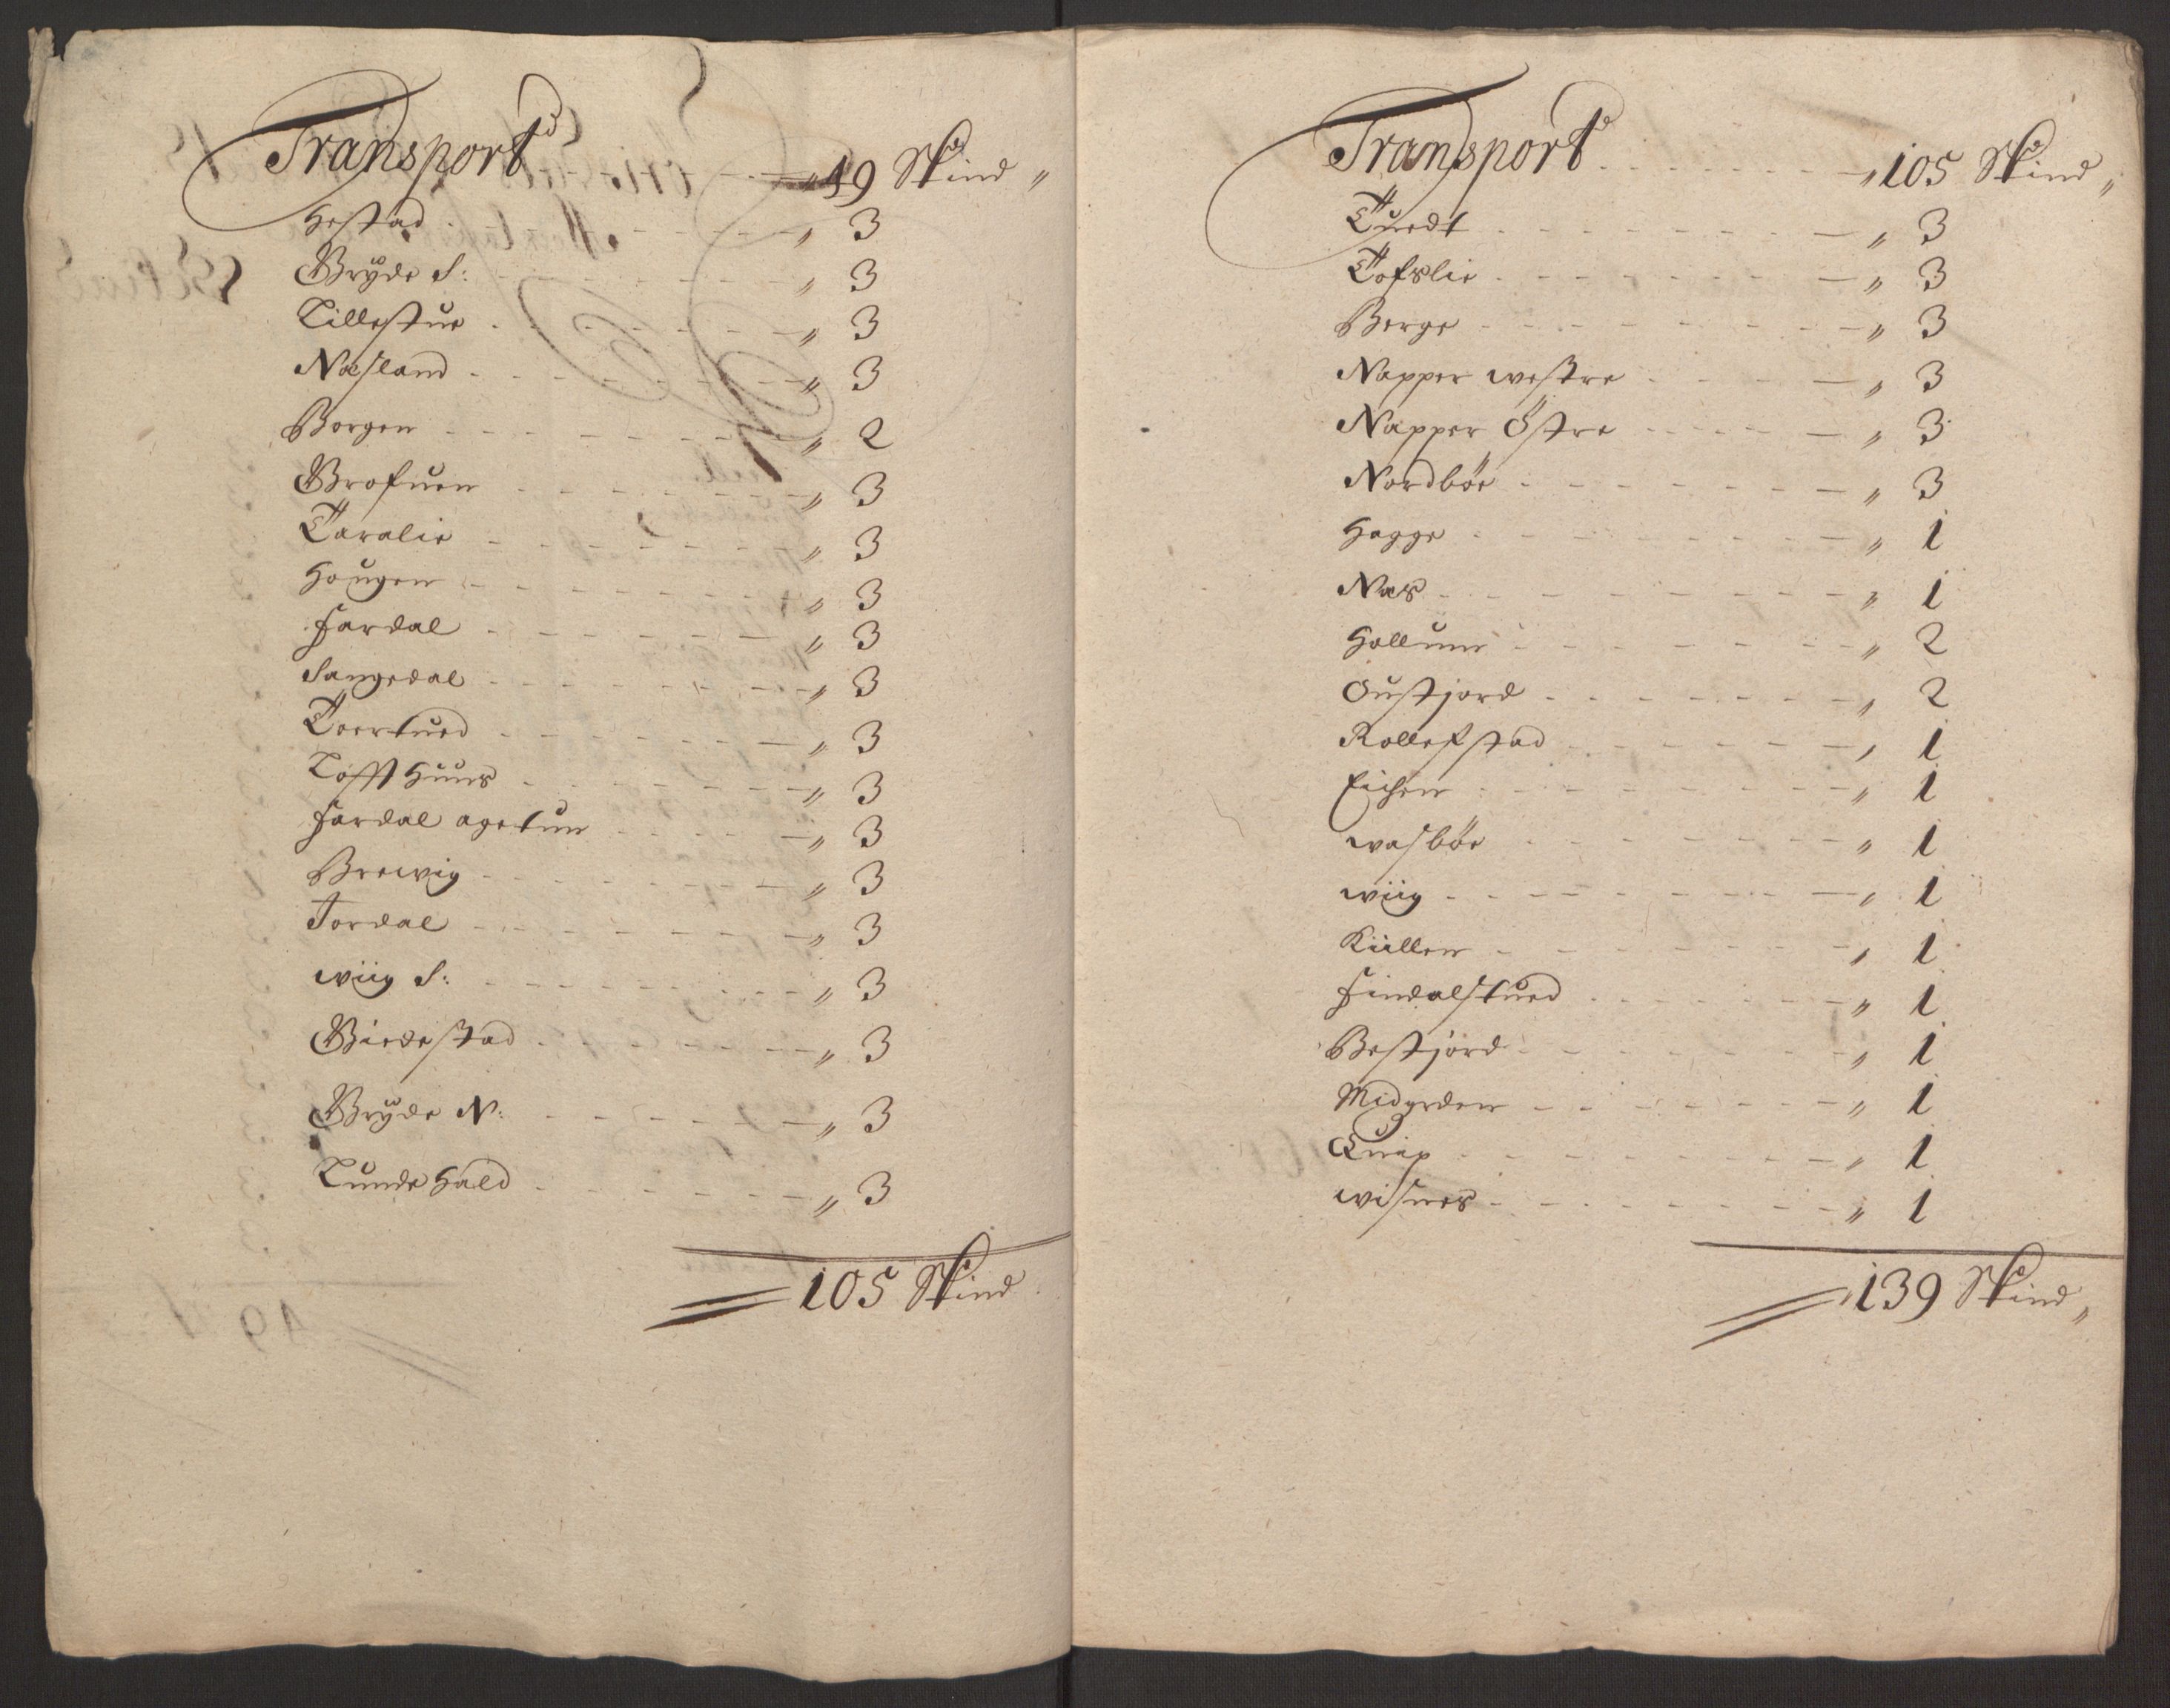 Transport 49 Skind
Hestad 3
Brÿde S: 3
Lillestue 3
Næsland 3
Borgen 2
Brofuen 3
Taralie 3
Hougen 3
Fardal 3
Sangedal 3
Toertued 3
Lofft Huus 3
Fardal agetun 3
Brewig 3
Tordal 3
wiig S: 3
Birdestad 3
Brÿde N: 3
Lunde Hald 3
105 Skind
Transport 105 Skind
Tuedt 3
Tofslie 3
Berge 3
Napper westre 3
Napper Östre 3
Nordböe 3
Hagge 1
Næs 1
Hollum 2
Oustjord 2
Rollefstad 1
Eichen 1
wasböe 1
wiig 1
Kiillen 1
Findalstued 1
Bestjord 1
Midgrden 1
Quip 1
wisnes 1
139 Skind